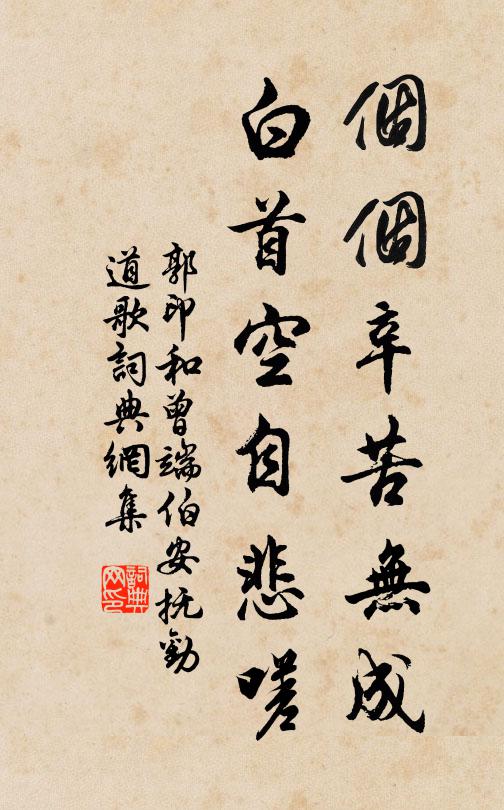 個個辛苦無成
白首空自悲嗟
郭印和曾端伯安抚勸
道歌詞典網集
詞典网印